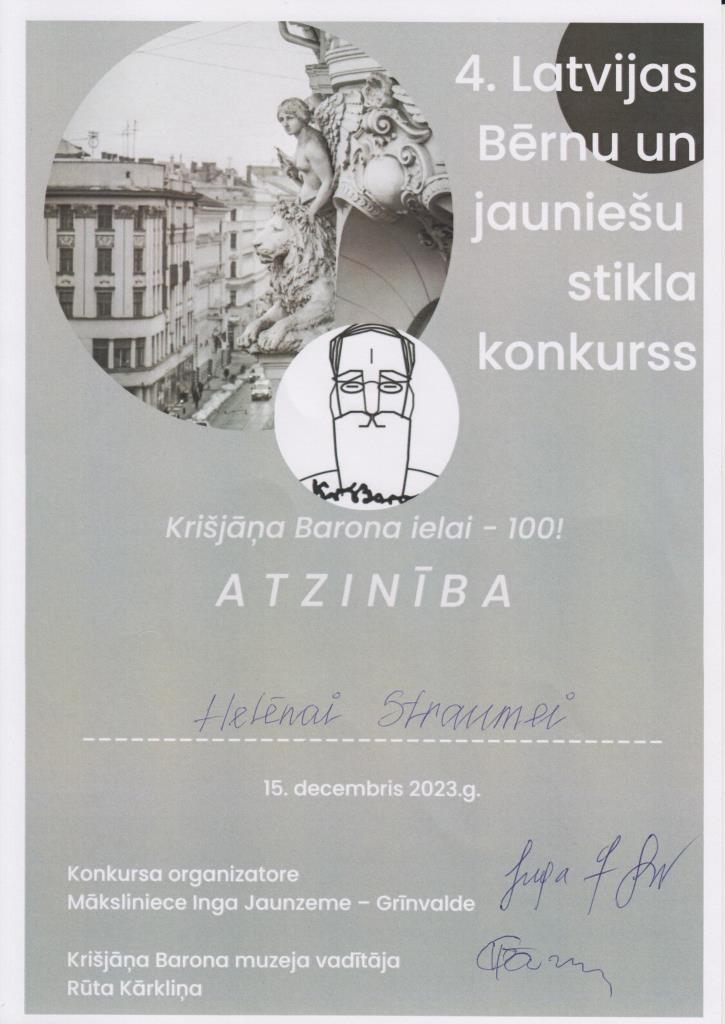 4. Latvijas
Bērnu un
jauniešu
stikla
konkurss
Kr Baro
Krišjāņa Barona ielai - 100!
ATZINĪBA
Helēnai Straumei
15. decembris 2023.g.
Konkursa organizatore
Māksliniece Inga Jaunzeme – Grīnvalde
Krišjāņa Barona muzeja vadītāja
Rūta Kārkliņa